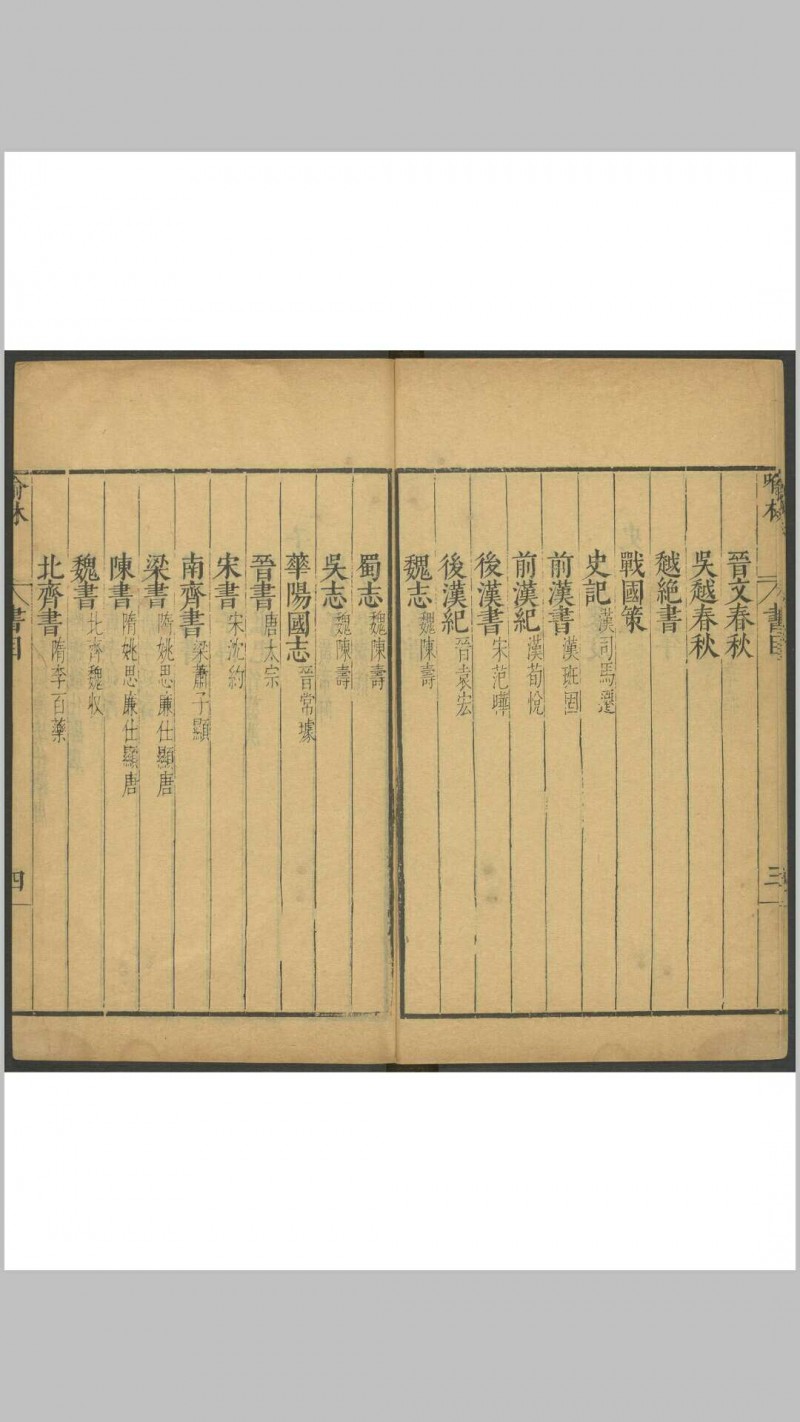 喻林
書目
三
晉文春秋
吳越春秋
越絕書
戰國策
史記 漢司馬遷
前漢書 漢班固
前漢紀 漢荀悅
後漢書 宋范曄
後漢紀 晉袁宏
魏志 魏陳壽
蜀志 魏陳壽
吳志 魏陳壽
華陽國志 晉常璩
晉書 唐太宗
宋書 宋沈約
南齊書 梁蕭子顯
梁書 隋姚思廉仕顯唐
陳書 隋姚思廉仕顯唐
魏書 北齊魏收
北齊書 隋李百藥
喻林
書目
四